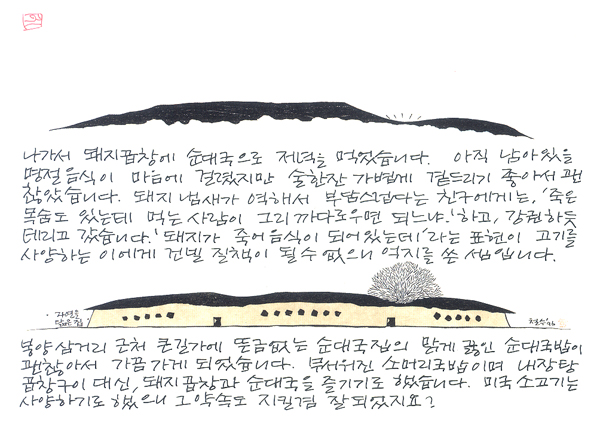 나가서 돼지곱창에 순대국으로 저녁을 먹었습니다. 아직 남아있을
명절음식이 마음에 걸렸지만 술한잔 가볍게 곁드리기 좋아서 괜
찮았습니다. 돼지 냄새가 역해서 부담스럽다는 친구에게는, '죽은
목숨도 있는데 먹는 사람이 그리 까다로우면 되느냐.' 하고, 강권하듯
데리고 갔습니다. '돼지가 죽어 음식이 되어있는데'라는 표현이 고기를
사양하는 이에게 건넬 질책이 될 수 없으니 억지를 쓴 셈입니다.
자연을
닮은 집
철수 '06
봉양 삼거리 근처 큰길가에 뜬금없는 순대국집의 맑게 끓인 순대국밥이
괜찮아서 가끔 가게 되었습니다. 부서워진 소머리국밥이며 내장탕
곱창구이 대신, 돼지곱창과 순대국을 즐기기로 했습니다. 미국 소고기는
사양하기로 했으니 그 약속도 지킬겸 잘 되었지요?